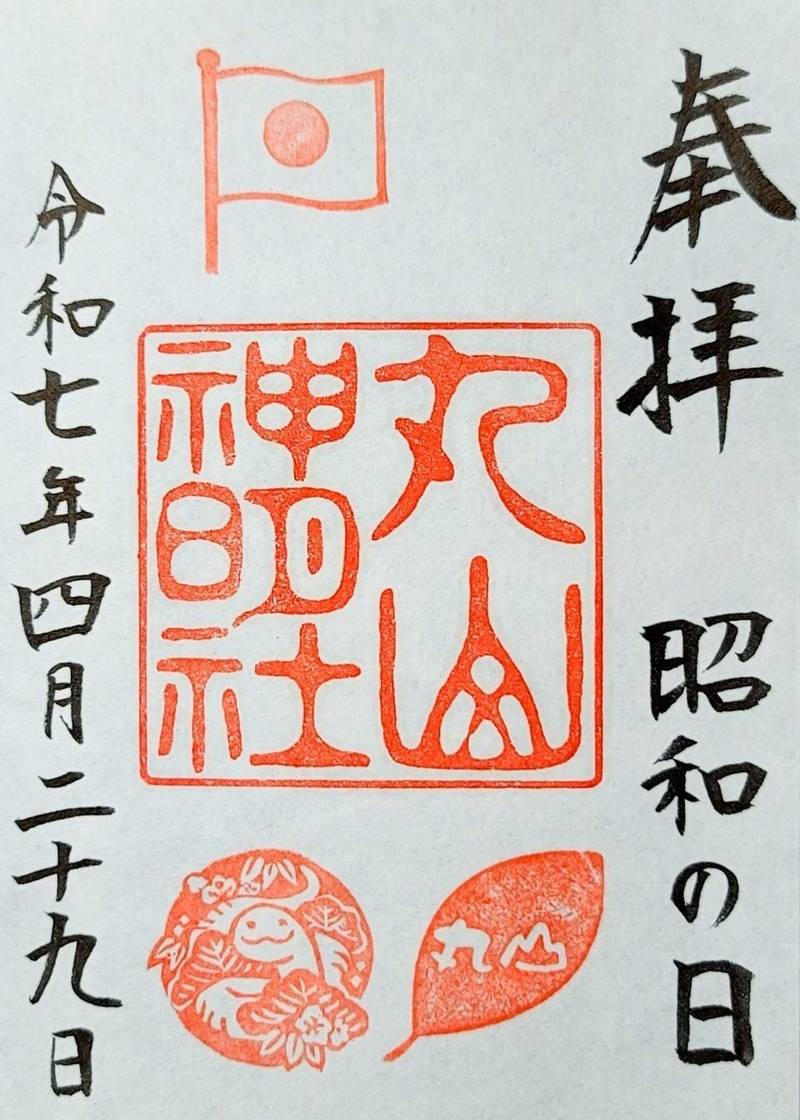 奉拝 昭和の日
丸山
神明社
令和七年四月二十九日
丸山